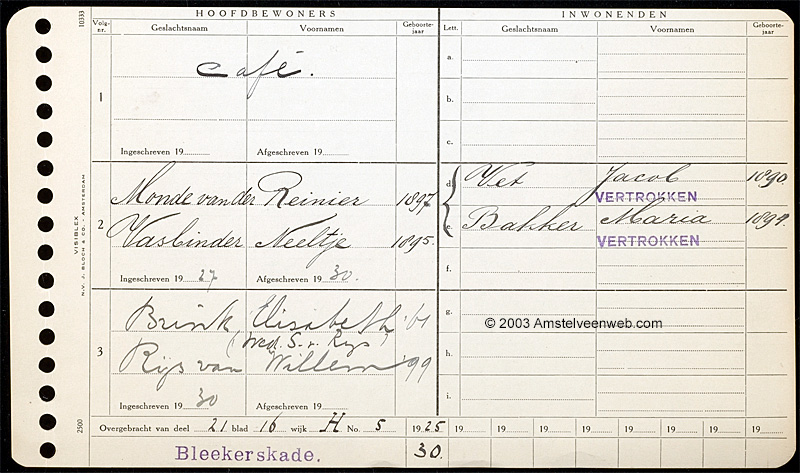 HOOFDBEWONERS INWONENDEN
10333 Volg-nr. Geslachtsnaam Voornamen Geboorte-jaar Lett. Geslachtsnaam Voornamen Geboorte-jaar
1 Café. a.
b.
c.
Ingeschreven 19 Afgeschreven 19
2 Monde van der Reinier 1897 d. Vet Jacob 1890.
VERTROKKEN
Vasbinder Neeltje 1895. e. Bakker Maria 1894.
VERTROKKEN
f.
Ingeschreven 19 27 Afgeschreven 19 30.
VISIBLEX
N.V. J. BLOCH & CO. - AMSTERDAM
3 Brink, Elisabeth '61 g.
© 2003 Amstelveenweb.com
(wed. S. v. Rijs)
Rijs van Willem '99 h.
i.
Ingeschreven 19 30 Afgeschreven 19
2500 Overgebracht van deel 21 blad 16 wijk H No. 5 1925 19 19 19 19 19 19 19 19
Bleekerskade. 30.